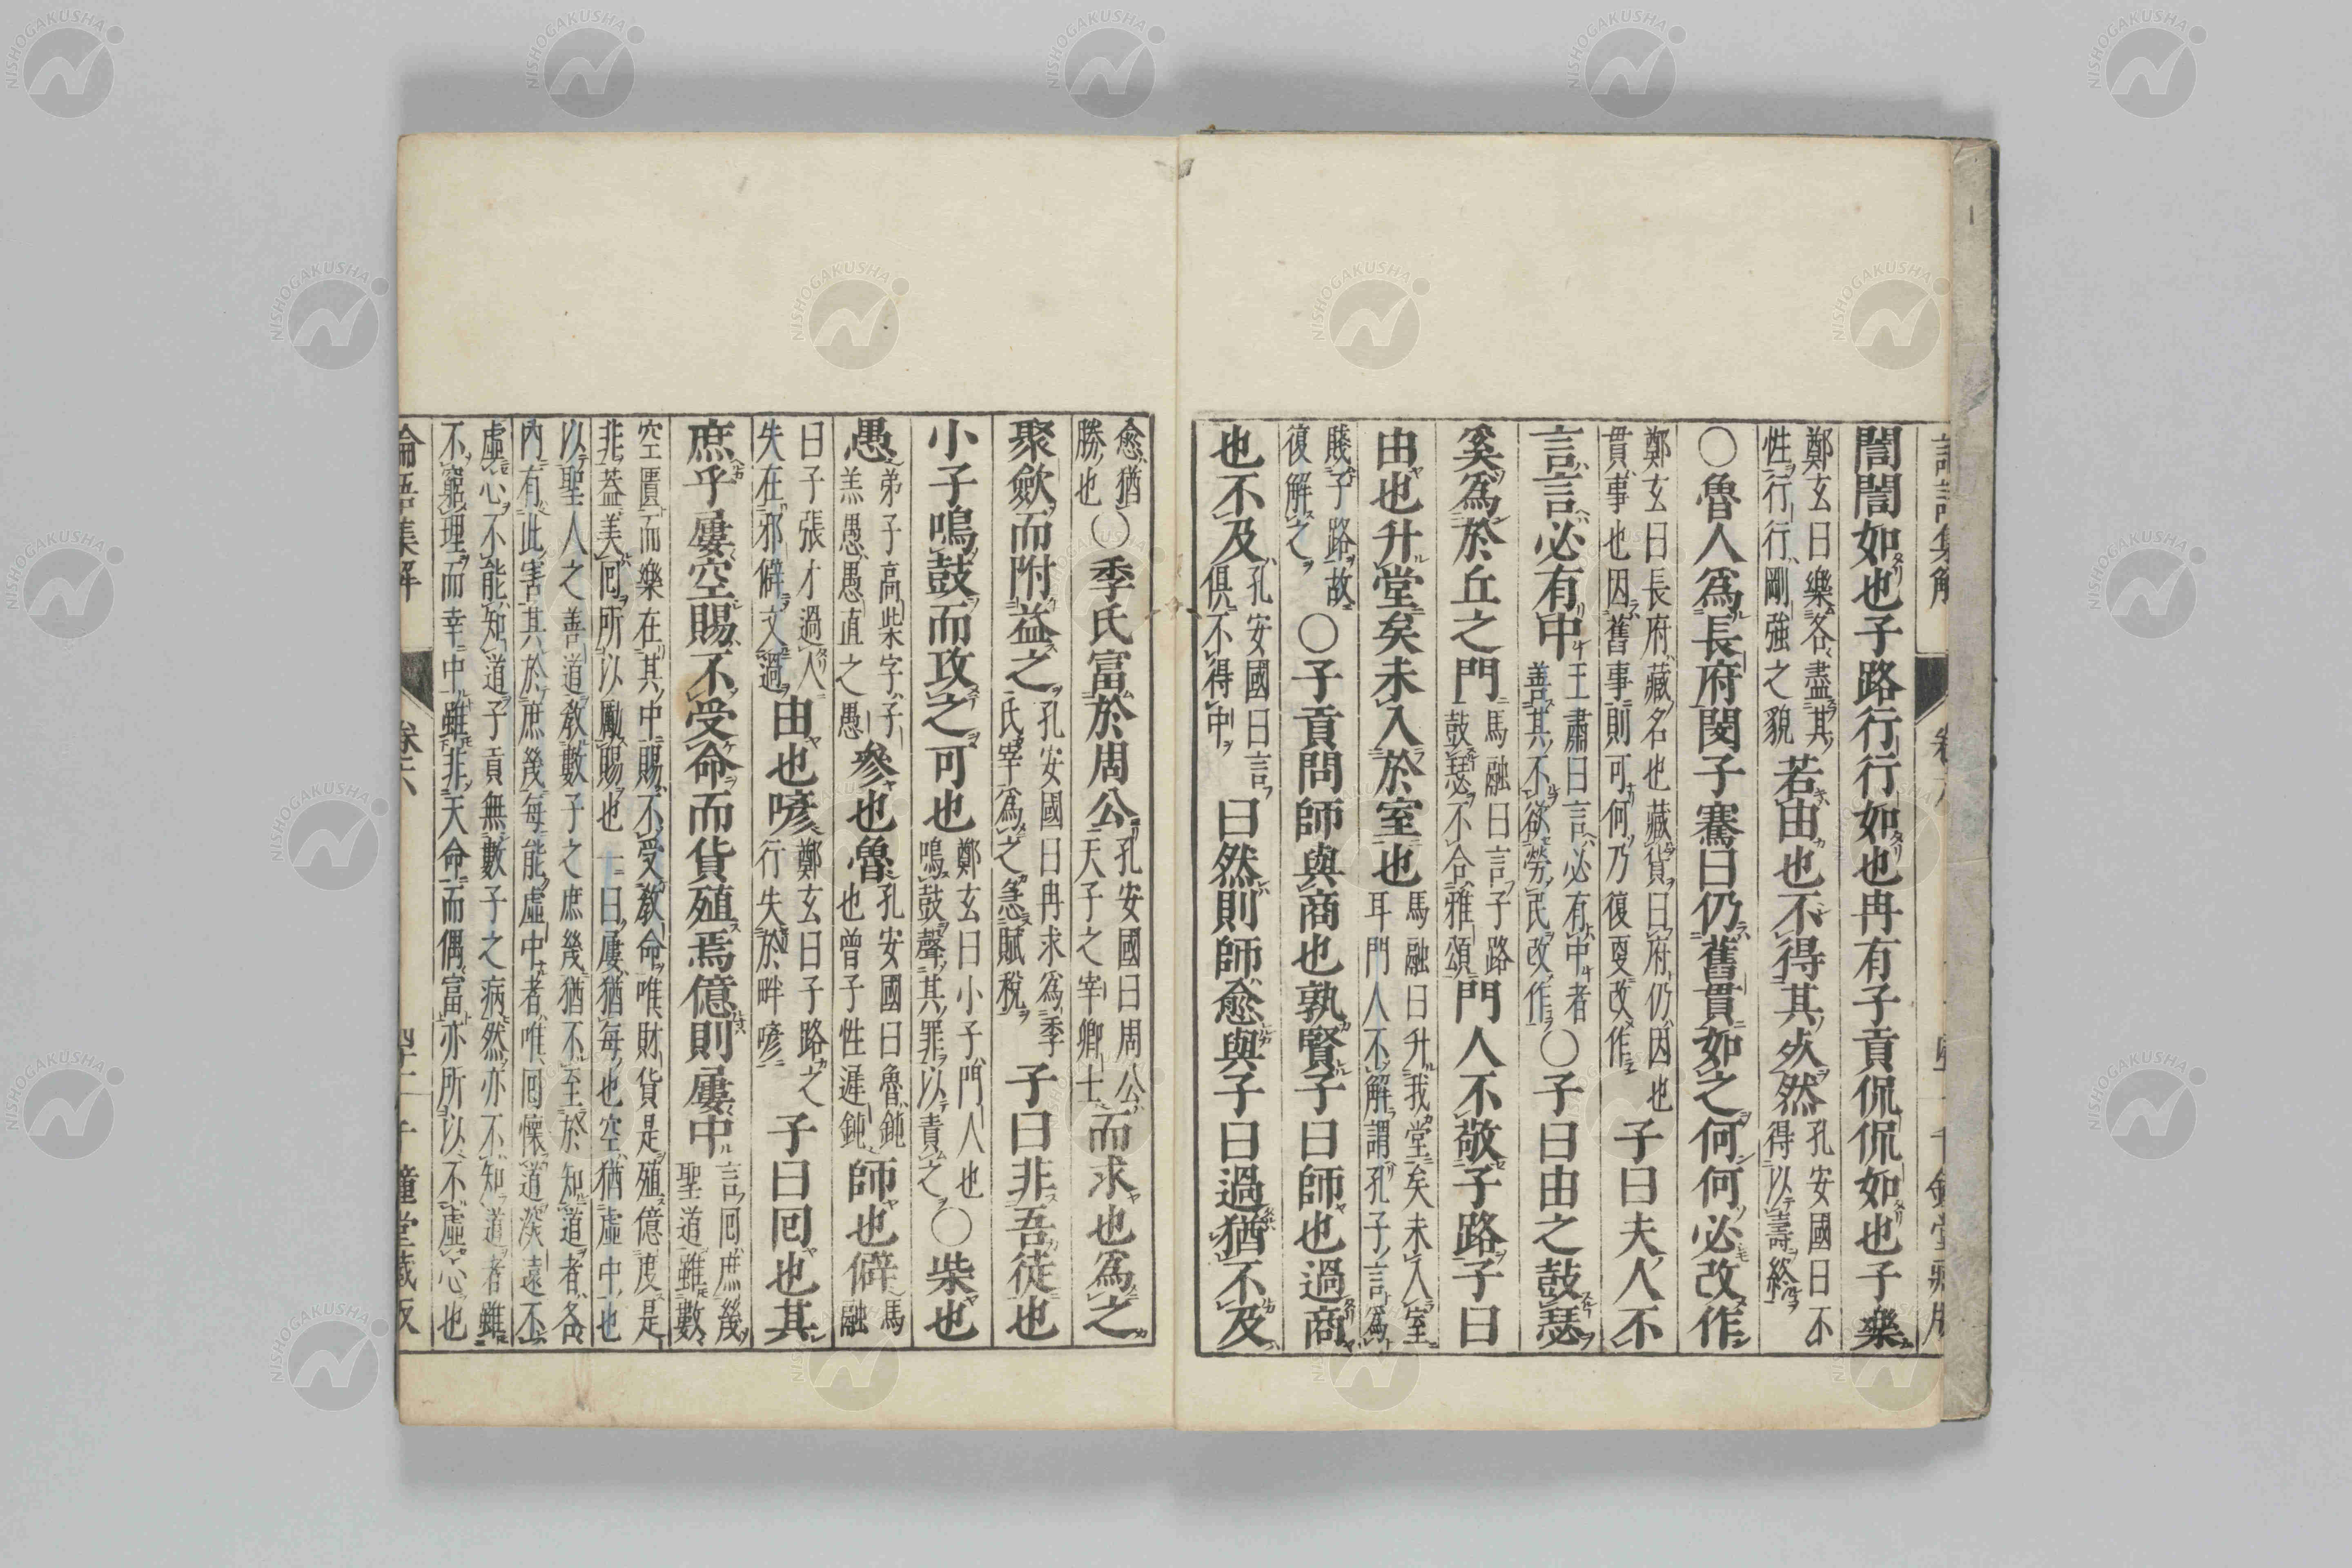 誾誾如也子路行行如也冉有子貢侃侃如也子樂
鄭玄曰樂各盡其
性行行剛強之貌
若由也不得其死然
孔安國曰不
得以壽終
○魯人爲長府閔子騫曰仍舊貫如之何何必改作
鄭玄曰長府藏名也藏貨曰府仍因也
貫事也因舊事則可何乃復更改作
子曰夫人不
言言必有中
王肅曰言必有中者
善其不欲勞民改作
○子曰由之鼓瑟
奚爲於丘之門
馬融曰言子路
鼓瑟不合雅頌
門人不敬子路子曰
由也升堂矣未入於室也
馬融曰升我堂矣未入室
耳門人不解謂孔子言爲
賤子路故
復解之
○子貢問師與商也孰賢子曰師也過商
也不及
孔安國曰言
俱不得中
曰然則師愈與子曰過猶不及
愈猶
勝也
○季氏富於周公
孔安國曰周公
天子之宰卿士
而求也爲之
聚歛而附益之
孔安國曰冉求爲季
氏宰爲之急賦稅
子曰非吾徒也
小子鳴鼓而攻之可也
鄭玄曰小子門人也
鳴鼓聲其罪以責之
○柴也
愚
弟子高柴字子
羔愚愚直之愚
參也魯
孔安國曰魯鈍
也曾子性遲鈍
師也僻
馬融
曰子張才過人
失在邪僻文過
由也喭
鄭玄曰子路之
行失於畔喭
子曰回也其
庶乎屢空賜不受命而貨殖焉億則屢中
言回庶幾
聖道雖數
空匱而樂在其中賜不受教命唯財貨是殖億度是
非蓋美回所以勵賜也一曰屢猶每也空猶虛中也
以聖人之善道教數子之庶幾猶不至於知道者各
內有此害其於庶幾每能虛中者唯回懷道深遠不
虛心不能知道子貢無數子之病然亦不知道者雖
不窮理而幸中雖非天命而偶富亦所以不虛心也
論語集解
卷六
NISHOGAKUSHA